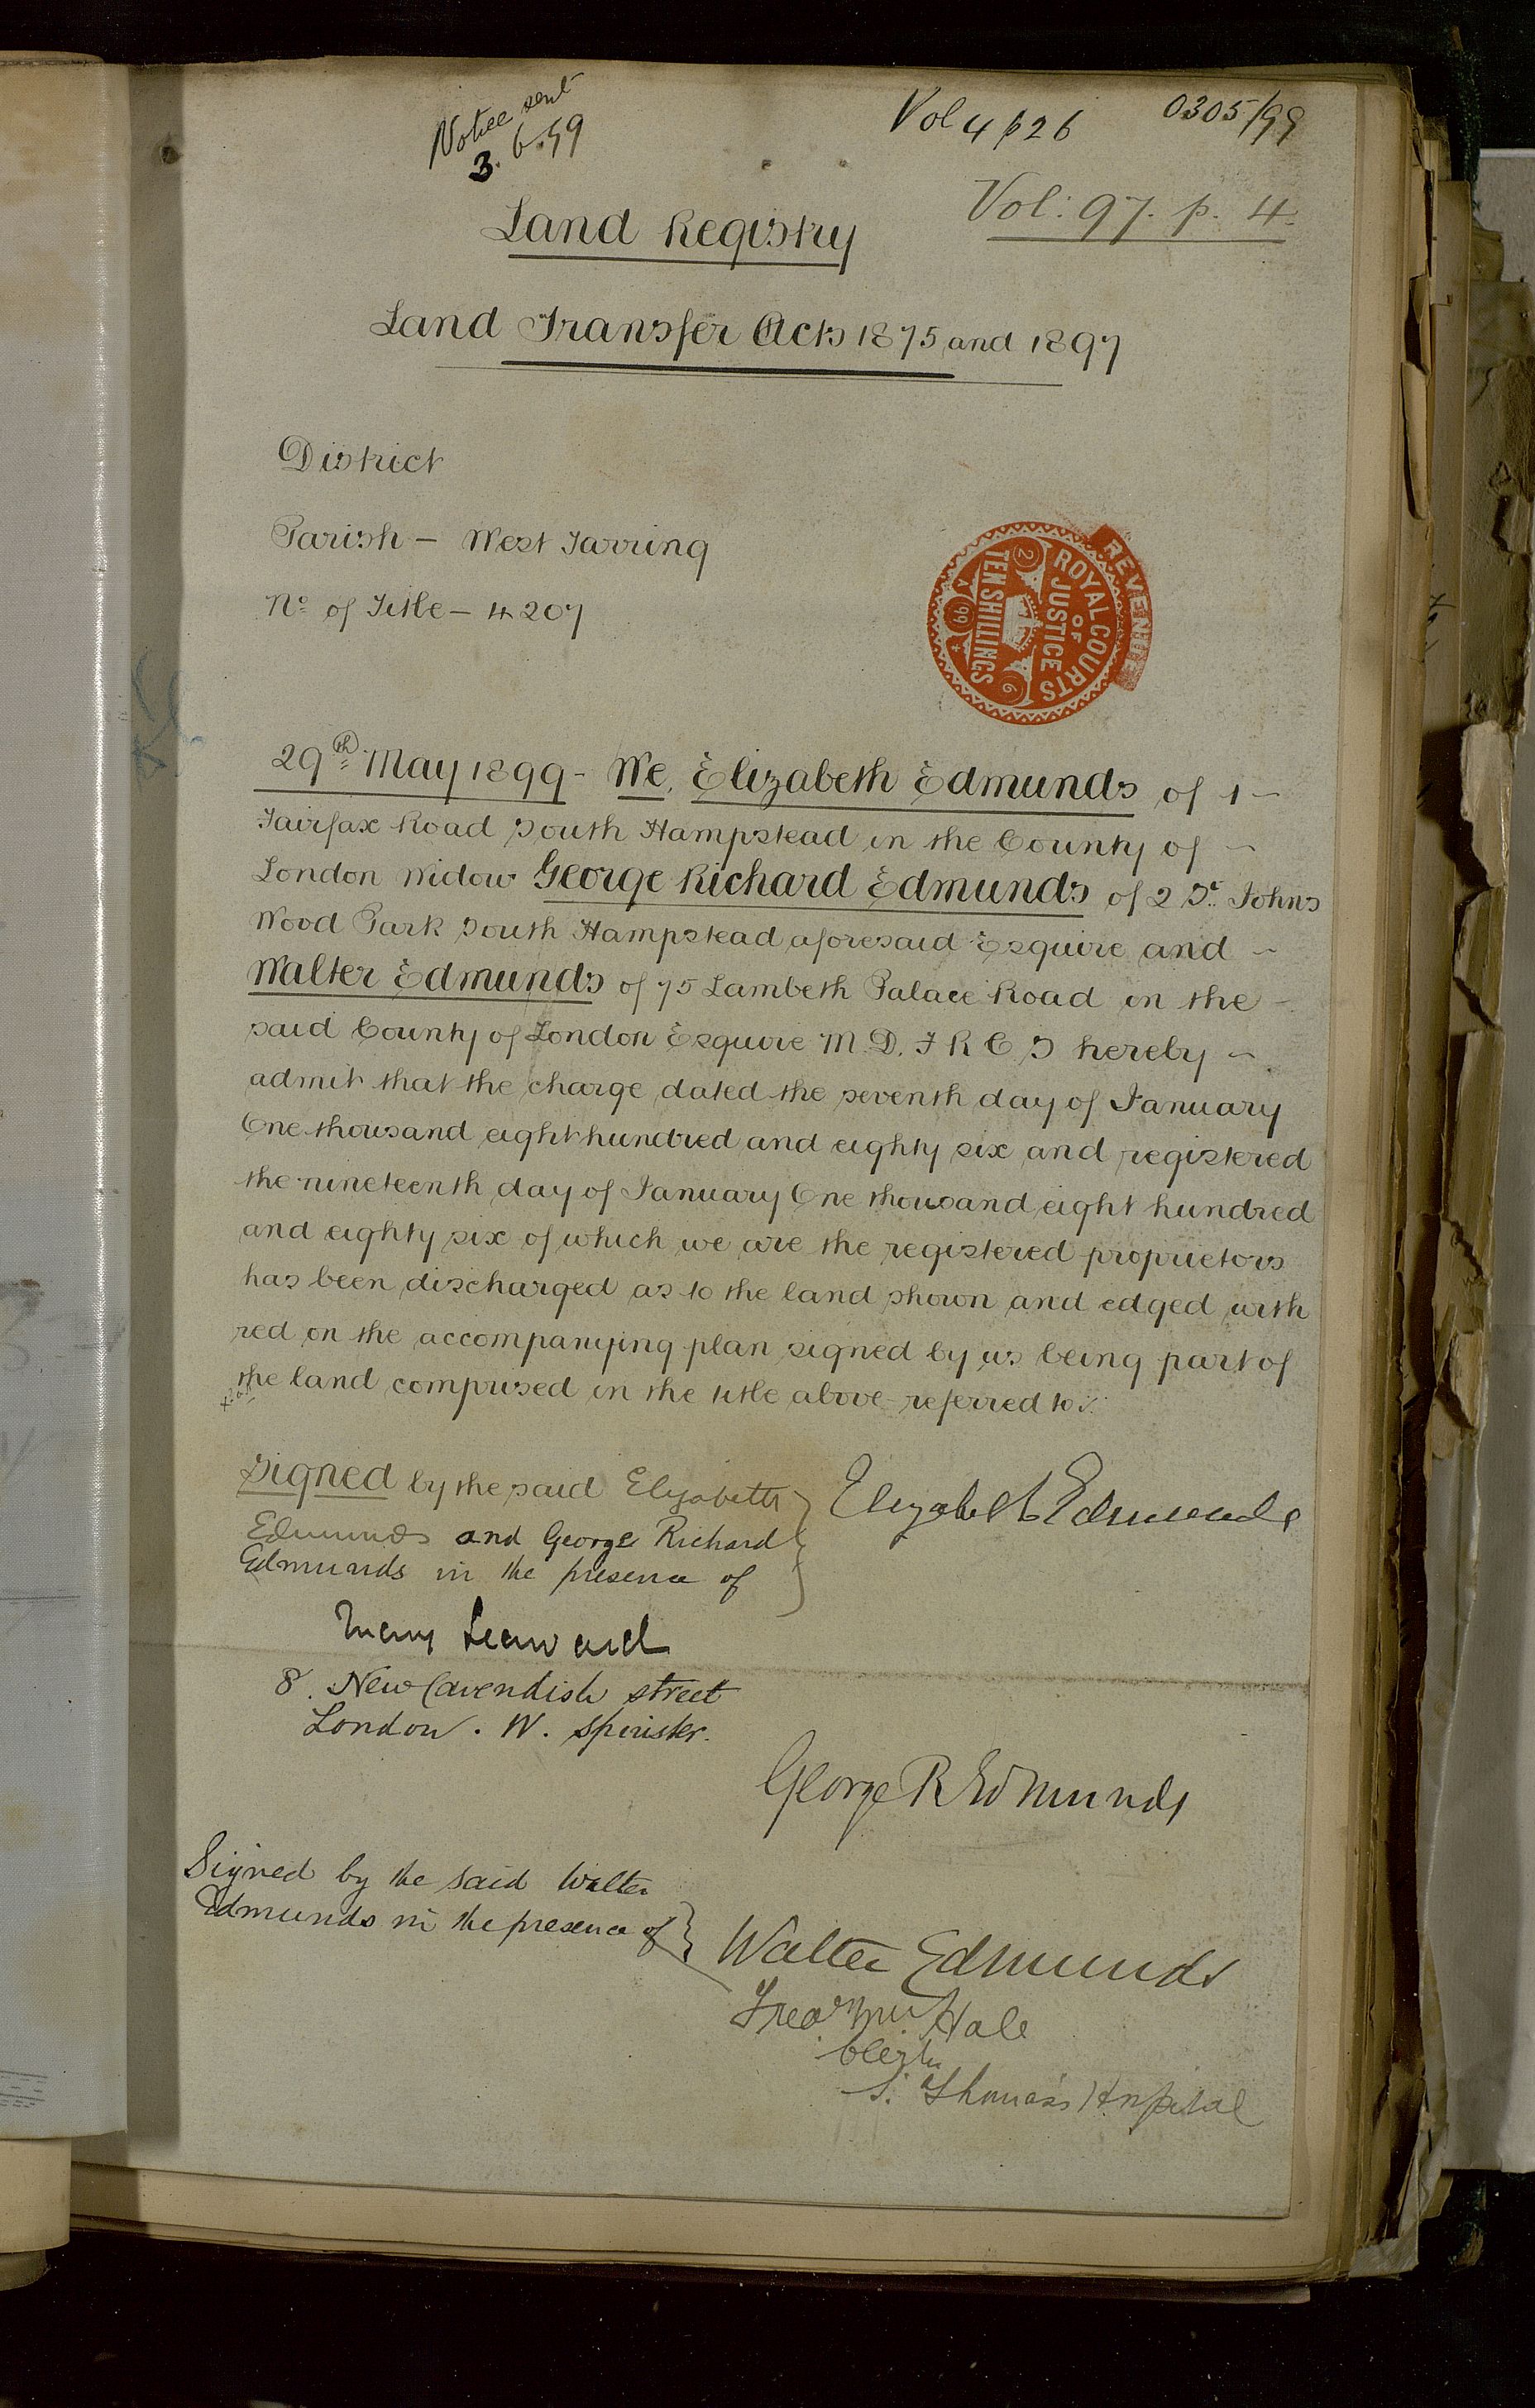 Notice sent
3.6.99
Vol 4 p26
0305/99
Vol: 97. p. 4.
Land Registry
Land Transfer Acts 1875 and 1897
District
Parish - West Tarring
No of Title - 4207
REVENUE
ROYAL COURTS
OF
JUSTICE
TEN SHILLINGS
2
A 99
6
29th May 1899 - We, Elizabeth Edmunds of 1 -
Fairfax Road South Hampstead in the County of -
London Widow George Richard Edmunds of 2 St. Johns
Wood Park South Hampstead aforesaid Esquire and -
Walter Edmunds of 75 Lambeth Palace Road in the -
said County of London Esquire M. D. F R C S hereby -
admit that the charge dated the seventh day of January
One thousand eight hundred and eighty six and registered
the nineteenth day of January One thousand eight hundred
and eighty six of which we are the registered proprietors
has been discharged as to the land shown and edged with
red on the accompanying plan signed by us being part of
the land comprised in the title above referred to.
Signed by the said Elizabeth
Edmunds and George Richard
Edmunds in the presence of
Elizabeth Edmunds
Mary Seaward
8. New Cavendish street
London. W. Spinster.
George R Edmunds
Signed by the said Walter
Edmunds in the presence of
Walter Edmunds
Hale
Clerk
S. Thomas's Hospital